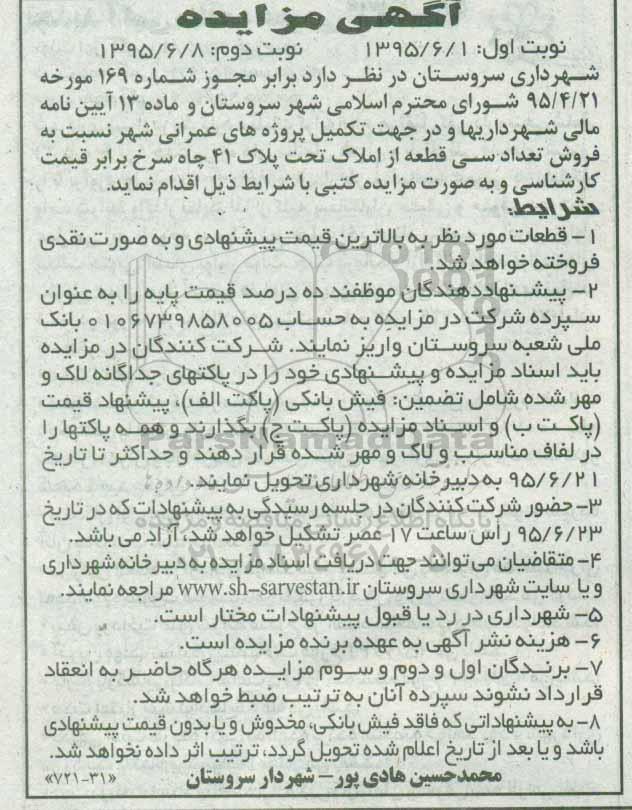 آگهی مزایده
نوبت اول: ۱۳۹۵/۶/۱ نوبت دوم: ۱۳۹۵/۶/۸
شهرداری سروستان در نظر دارد برابر مجوز شماره ۱۶۹ مورخه
۹۵/۴/۲۱ شورای محترم اسلامی شهر سروستان و ماده ۱۳ آیین نامه
مالی شهرداریها و در جهت تکمیل پروژه های عمرانی شهر نسبت به
فروش تعداد سی قطعه از املاک تحت پلاک ۴۱ چاه سرخ برابر قیمت
کارشناسی و به صورت مزایده کتبی با شرایط ذیل اقدام نماید.
شرایط:
۱- قطعات مورد نظر به بالاترین قیمت پیشنهادی و به صورت نقدی
فروخته خواهد شد.
۲- پیشنهاددهندگان موظفند ده درصد قیمت پایه را به عنوان
سپرده شرکت در مزایده به حساب ۰۱۰۶۷۳۹۸۵۸۰۰۵ بانک
ملی شعبه سروستان واریز نمایند. شرکت کنندگان در مزایده
باید اسناد مزایده و پیشنهادی خود را در پاکتهای جداگانه لاک و
مهر شده شامل تضمین: فیش بانکی (پاکت الف)، پیشنهاد قیمت
(پاکت ب) و اسناد مزایده (پاکت ج) بگذارند و همه پاکتها را
در لفاف مناسب و لاک و مهر شده قرار دهند و حداکثر تا تاریخ
۹۵/۶/۲۱ به دبیرخانه شهرداری تحویل نمایند.
۳- حضور شرکت کنندگان در جلسه رسیدگی به پیشنهادات که در تاریخ
۹۵/۶/۲۳ رأس ساعت ۱۷ عصر تشکیل خواهد شد، آزاد می باشد.
۴- متقاضیان می توانند جهت دریافت اسناد مزایده به دبیرخانه شهرداری
و یا سایت شهرداری سروستان www.sh-sarvestan.ir مراجعه نمایند.
۵- شهرداری در رد یا قبول پیشنهادات مختار است.
۶- هزینه نشر آگهی به عهده برنده مزایده است.
۷- برندگان اول و دوم و سوم مزایده هرگاه حاضر به انعقاد
قرارداد نشوند سپرده آنان به ترتیب ضبط خواهد شد.
۸- به پیشنهاداتی که فاقد فیش بانکی، مخدوش و یا بدون قیمت پیشنهادی
باشد و یا بعد از تاریخ اعلام شده تحویل گردد، ترتیب اثر داده نخواهد شد.
محمدحسین هادی پور- شهردار سروستان «۷۲۱-۳۱»
ParsNamadData